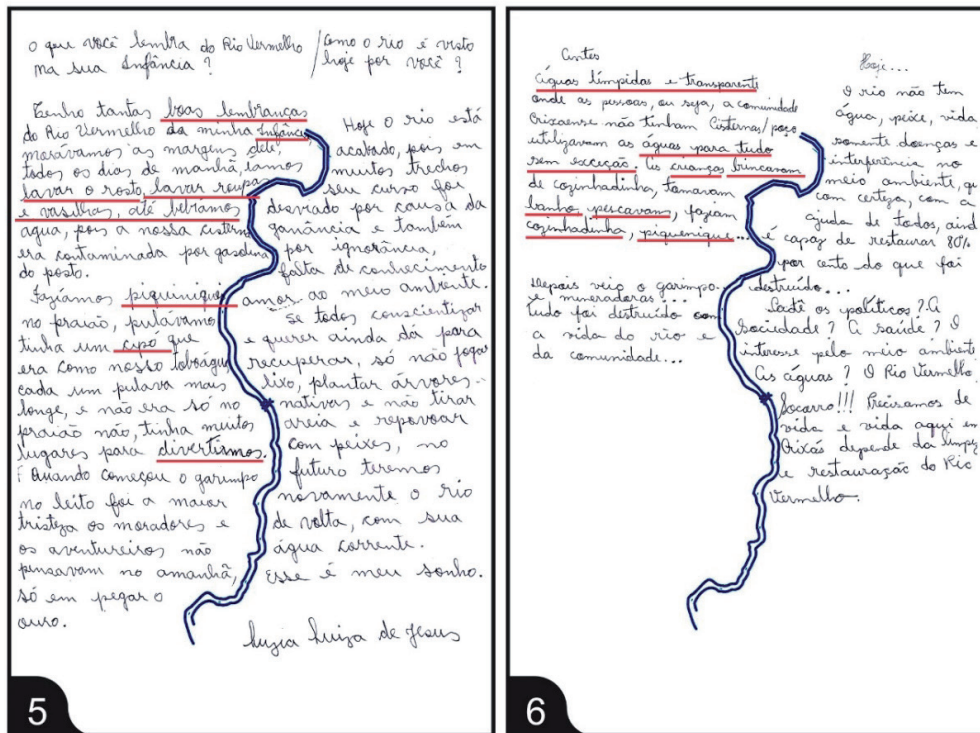 O que você lembra do Rio Vermelho
na sua Infância?
/Como o rio é visto
hoje por você?
Tenho tantas boas lembranças
do Rio Vermelho da minha Infância,
morávamos as margens dele
todos os dias de manhã, íamos
lavar o rosto, lavar roupas
e vasilhas, até bebíamos
água, pois a nossa cisterna
era contaminada por gasolina
do posto.
Fazíamos piquinique
no praião, pulávamos
tinha um cipó que
era como nosso tobogã,
cada um pulava mais
longe, e não era só no
praião não, tinha muitos
lugares para divertirmos.
Quando começou o garimpo
no leito foi a maior
tristeza os moradores e
os aventureiros não
pensavam no amanhã,
só em pegar o
ouro.
Hoje o rio está
acabado, pois em
muitos trechos
seu curso foi
desviado por causa da
ganância e também
por ignorância,
falta de conhecimento
amor ao meio ambiente.
Se todos conscientizar
e querer ainda dá para
recuperar, só não jogar
lixo, plantar árvores
nativas e não tirar
areia e repovoar
com peixes, no
futuro teremos
novamente o rio
de volta, com sua
água corrente.
Esse é meu sonho.
Luzia Luiza de Jesus
5
Antes
Águas límpidas e transparente
onde as pessoas, ou seja, a comunidade
Crixaense não tinham Cisternas/poço
utilizavam as águas para tudo
sem exceção. As crianças brincavam
de cozinhadinha, tomavam
banho, pescavam, faziam
cozinhadinha, piquenique...
Depois veio o garimpo...
e mineradoras...
Tudo foi destruído com
a vida do rio e
da comunidade...
Hoje...
O rio não tem
água, peixe, vida
somente doenças e
interferência no
meio ambiente, q
com certeza, com a
ajuda de todos, aind
é capaz de restaurar 80%
por cento do que foi
destruído...
Cadê os políticos? A
Sociedade? A saúde? O
interesse pelo meio ambiente
As águas? O Rio Vermelho
Socorro!!! Precisamos de
vida e vida aqui em
Crixás depende da limpez
e restauração do Rio
Vermelho.
6